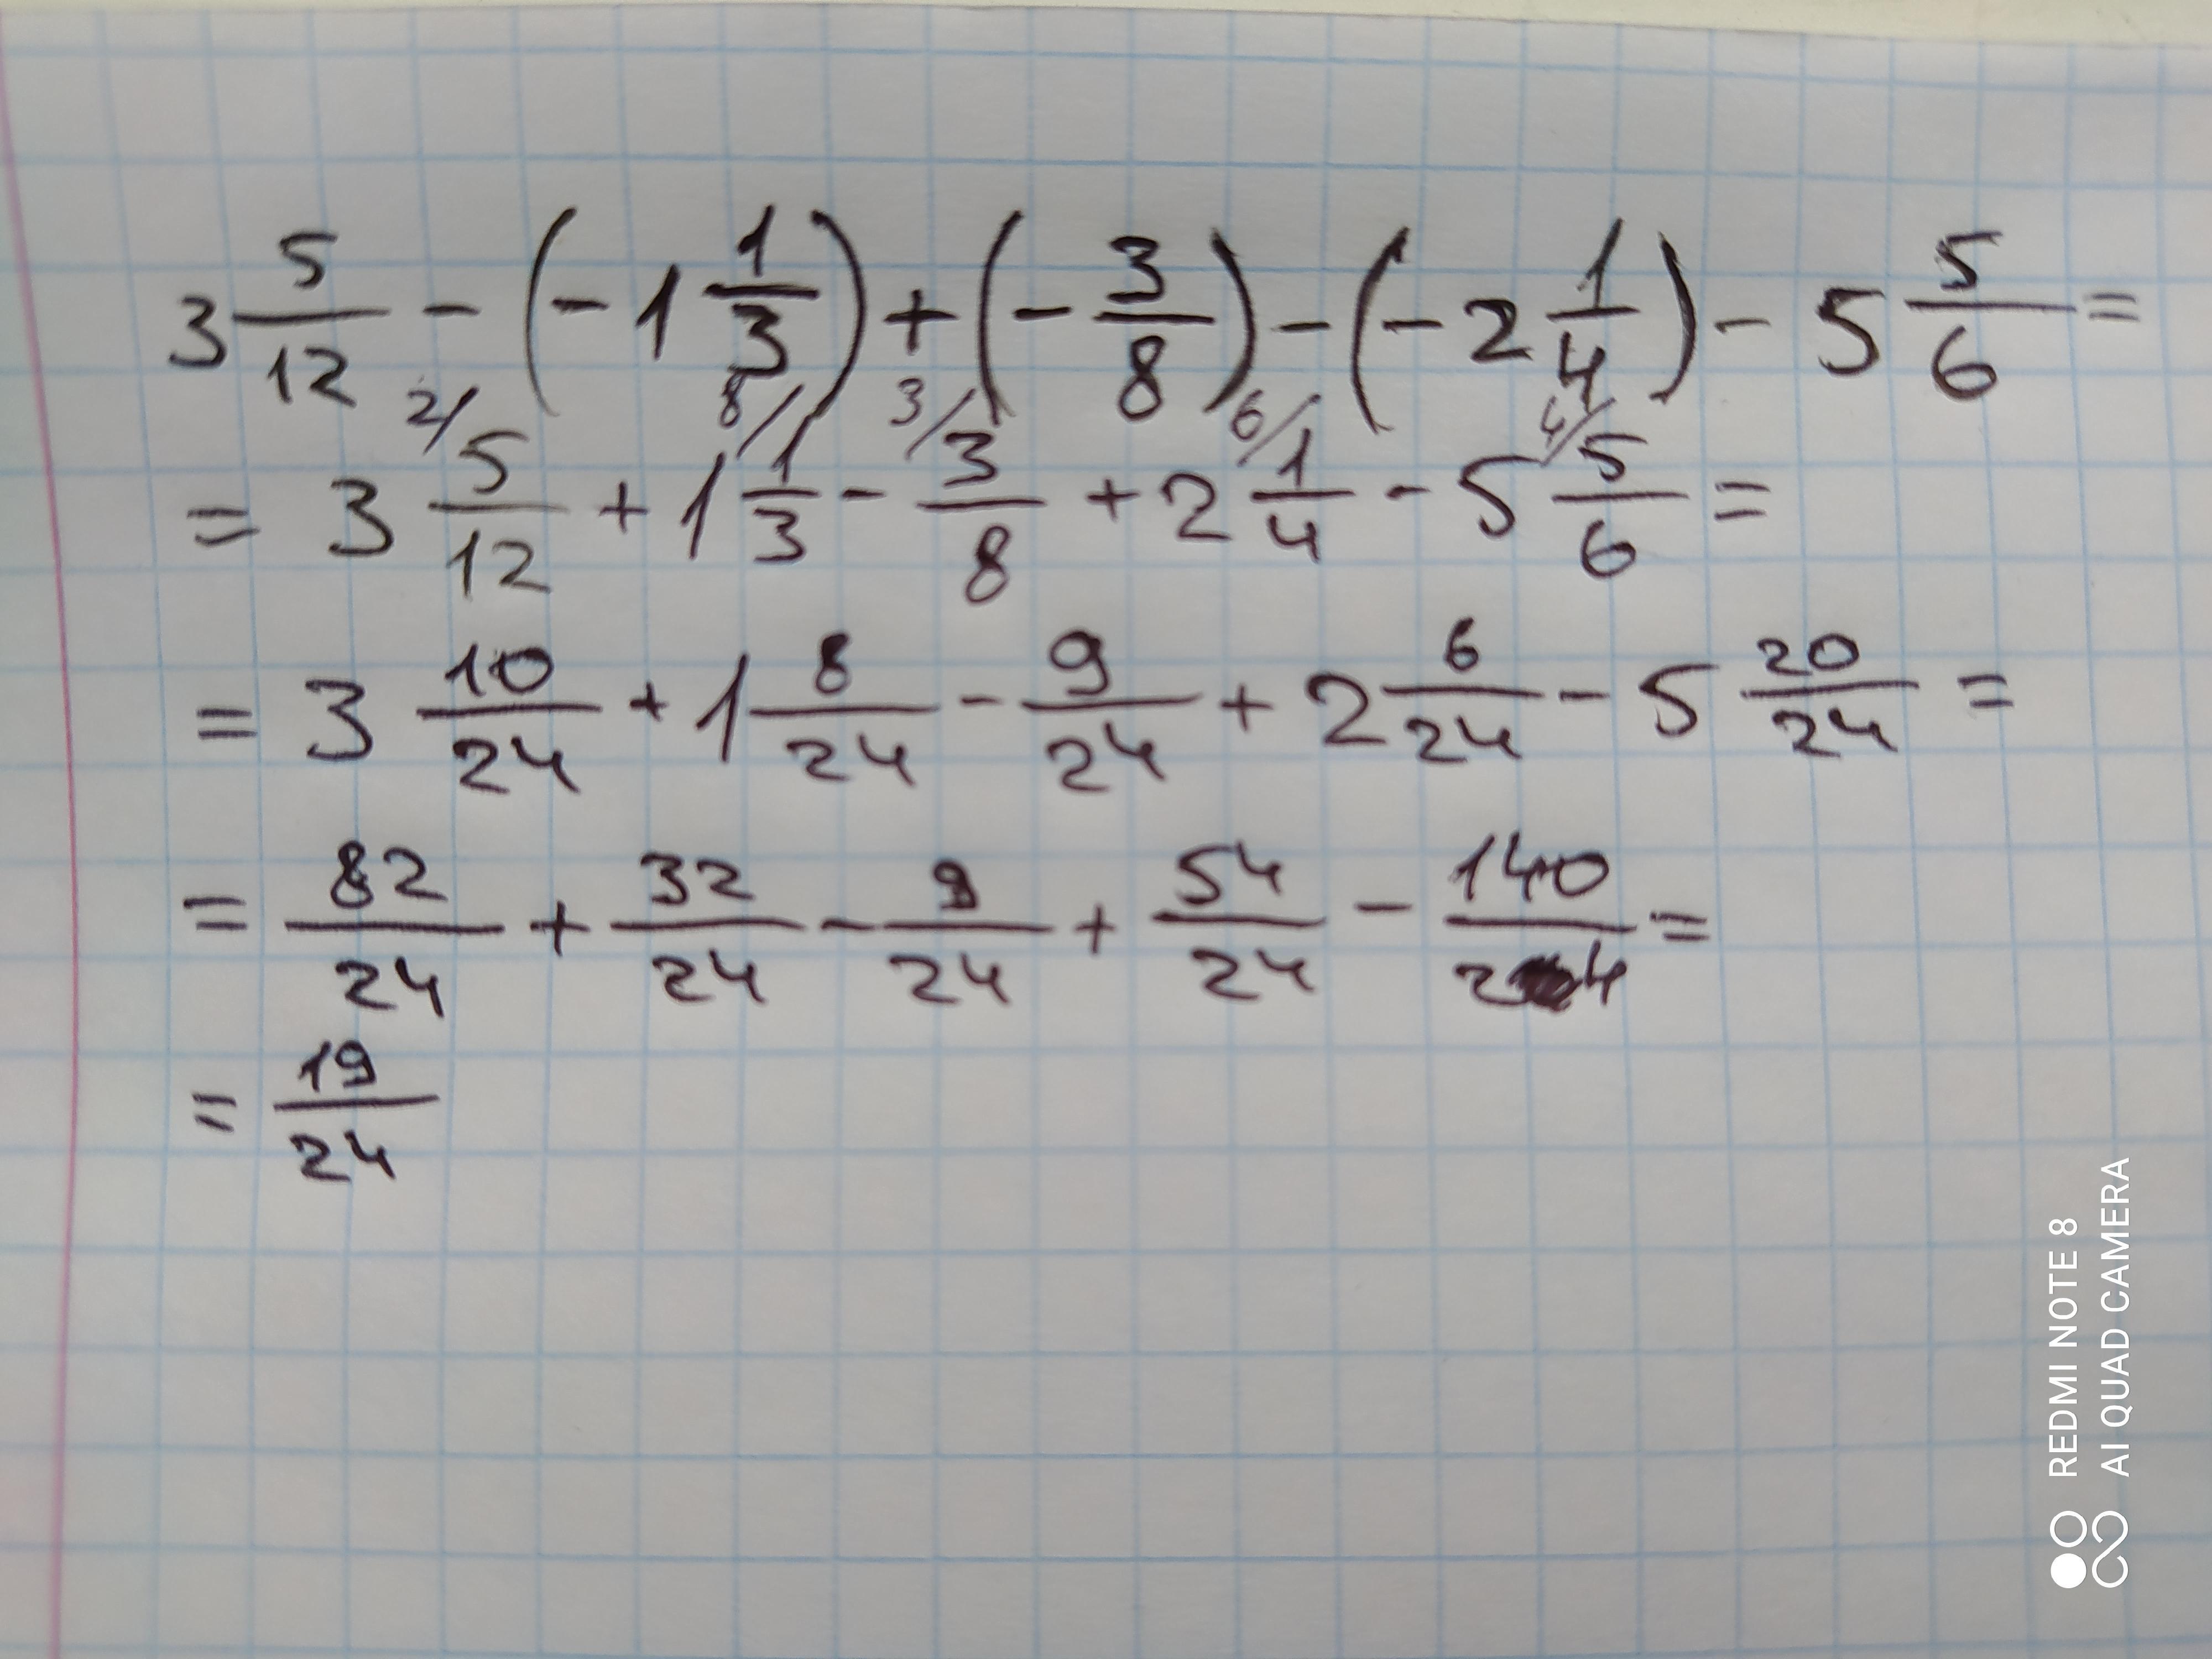 3 5/12 - (-1 1/3) + (-3/8) - (-2 1/4) - 5 5/6 =
2/ 8/ 3/ 6/ 4/
= 3 5/12 + 1 1/3 - 3/8 + 2 1/4 - 5 5/6 =
= 3 10/24 + 1 8/24 - 9/24 + 2 6/24 - 5 20/24 =
= 82/24 + 32/24 - 9/24 + 54/24 - 140/24 =
= 19/24
REDMI NOTE 8
AI QUAD CAMERA